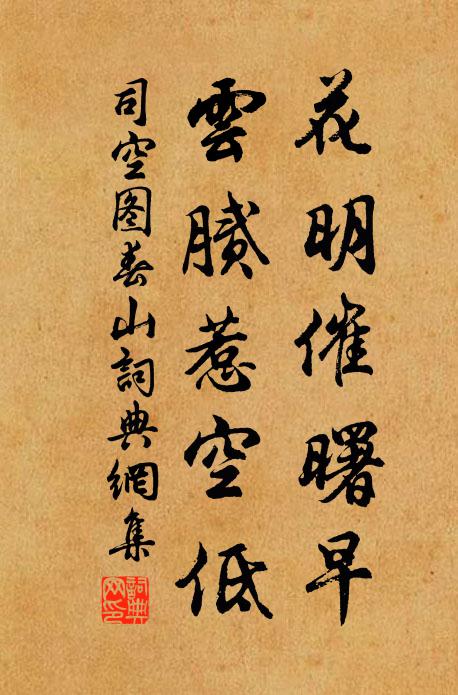 花明催曙早
雲膩惹空低
司空图春山詞典網集
詞典网印